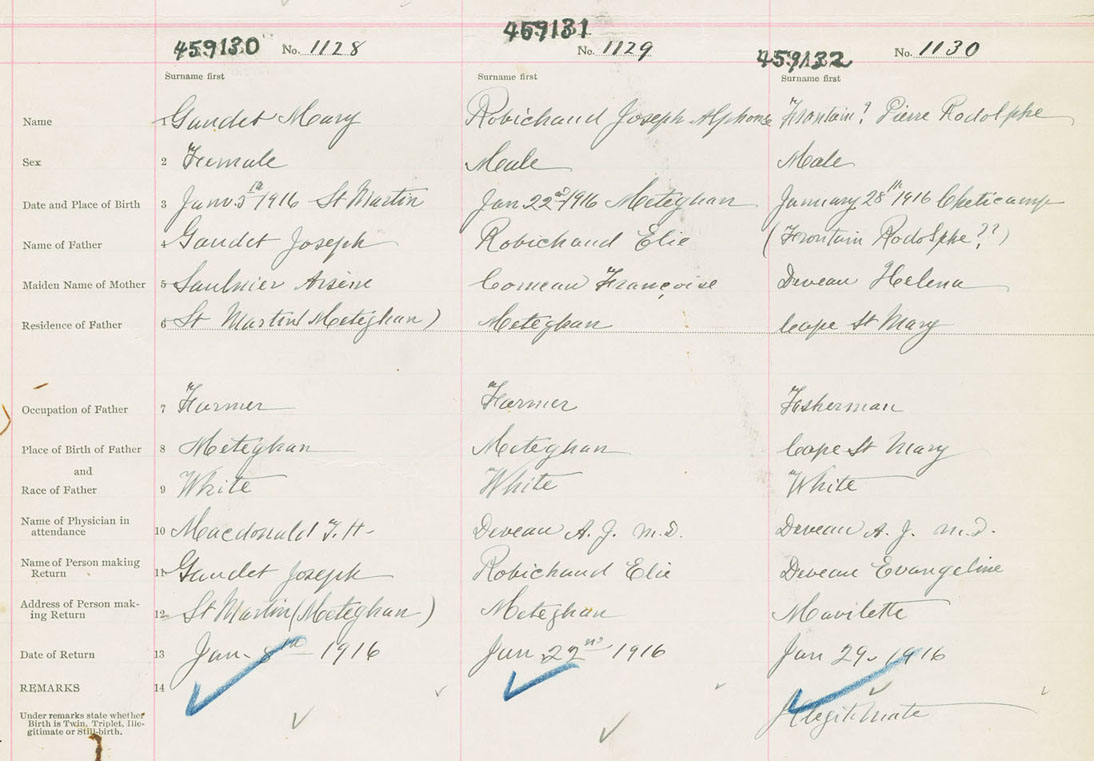 459130 No. 1128 459131 No. 1129 459132 No. 1130
Surname first Surname first Surname first
Name 1 Gaudet Mary Robichaud Joseph Alphonse Frontain? Pierre Rodolphe
Sex 2 Female Male Male
Date and Place of Birth 3 Jan. 5th 1916 St Martin Jan 22nd 1916 Meteghan January 28th 1916 Cheticamp
Name of Father 4 Gaudet Joseph Robichaud Elie (Frontain Rodolphe??)
Maiden Name of Mother 5 Saulnier Arsène Comeau Françoise Deveau Helena
Residence of Father 6 St Martin (Meteghan) Meteghan Cape St Mary
Occupation of Father 7 Farmer Farmer Fisherman
Place of Birth of Father 8 Meteghan Meteghan Cape St Mary
and
Race of Father 9 White White White
Name of Physician in attendance 10 Macdonald T. H. Deveau A. J. M.D. Deveau A. J. M.D.
Name of Person making Return 11 Gaudet Joseph Robichaud Elie Deveau Evangeline
Address of Person making Return 12 St Martin (Meteghan) Meteghan Mavilette
Date of Return 13 Jan. 8th 1916 Jan 22nd 1916 Jan 29. 1916
REMARKS 14
Under remarks state whether Birth is Twin, Triplet, Illegitimate or Still-birth. Illegitimate